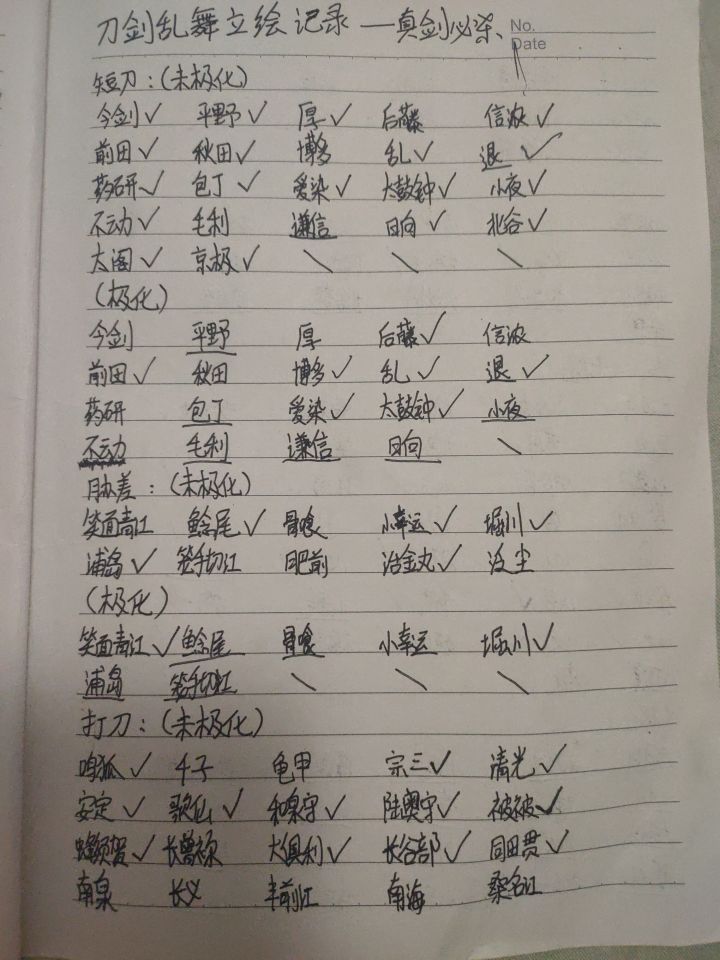 刀剑乱舞立绘记录 —真剑必杀、
No.
Date
短刀：(未极化)
今剑✓ 平野✓ 厚✓ 后藤 信浓✓
前田✓ 秋田✓ 博多 乱✓ 退✓
药研✓ 包丁✓ 爱染✓ 太鼓钟✓ 小夜✓
不动✓ 毛利 谦信 日向✓ 北谷✓
太阁✓ 京极✓ \ \ \
(极化)
今剑 平野 厚 后藤✓ 信浓
前田✓ 秋田 博多✓ 乱✓ 退✓
药研 包丁 爱染✓ 太鼓钟✓ 小夜
不动 毛利 谦信 日向 \
胁差：(未极化)
笑面青江 鲶尾✓ 骨喰 小幸运✓ 堀川✓
浦岛✓ 笼手切江 肥前 治金丸✓
(极化)
笑面青江✓ 鲶尾 骨喰 小幸运 堀川✓
浦岛 笼手切江 \ \ \
打刀：(未极化)
鸣狐✓ 千子 龟甲 宗三✓ 清光✓
安定✓ 歌仙✓ 和泉守✓ 陆奥守✓ 被被✓
蜂须贺✓ 长曾祢 大俱利✓ 长谷部✓ 同田贯✓
南泉 长义 丰前江 南海 桑名江